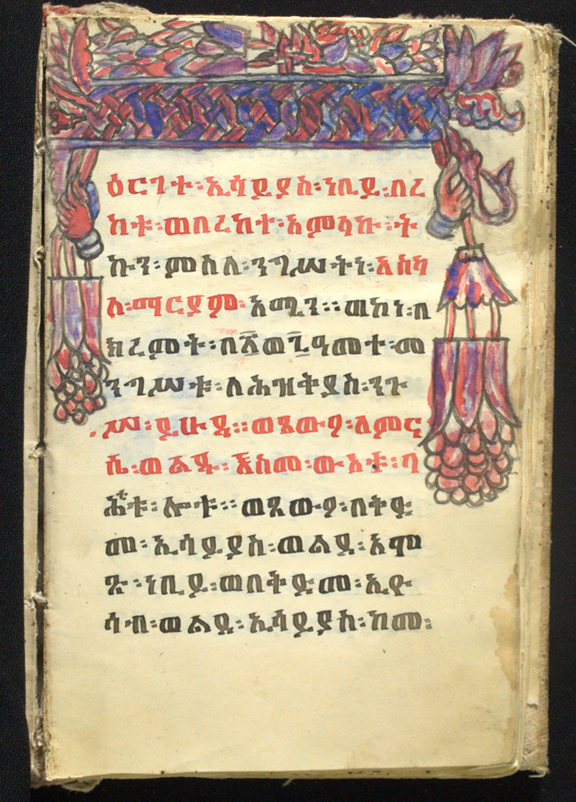 ዕርገተ፡ኢሳይያስ፡ነቢይ፡በረ
ከቱ፡ወበረከተ፡አምላኩ፡ት
ኩን፡ምስለ፡ንግሥትነ፡እስክ
ለ፡ማርያም፡አሜን፡፡ወኮነ፡በ
ክረምት፡በ፳ወ፮ዓመተ፡መ
ንግሡ፡ለሕዝቅያስ፡ንጉ
ሥ፡ይሁዳ፡፡ወጸውዖ፡ለምና
ሴ፡ወልዱ፡እስመ፡ውእቱ፡ባ
ሕቱ፡ሎቱ፡፡ወጸውዖ፡በቅድ
መ፡ኢሳይያስ፡ወልደ፡አሞ
ጽ፡ነቢይ፡ወበቅድመ፡ኢዮ
ሳብ፡ወልደ፡ኢሳይያስ፡ከመ፡